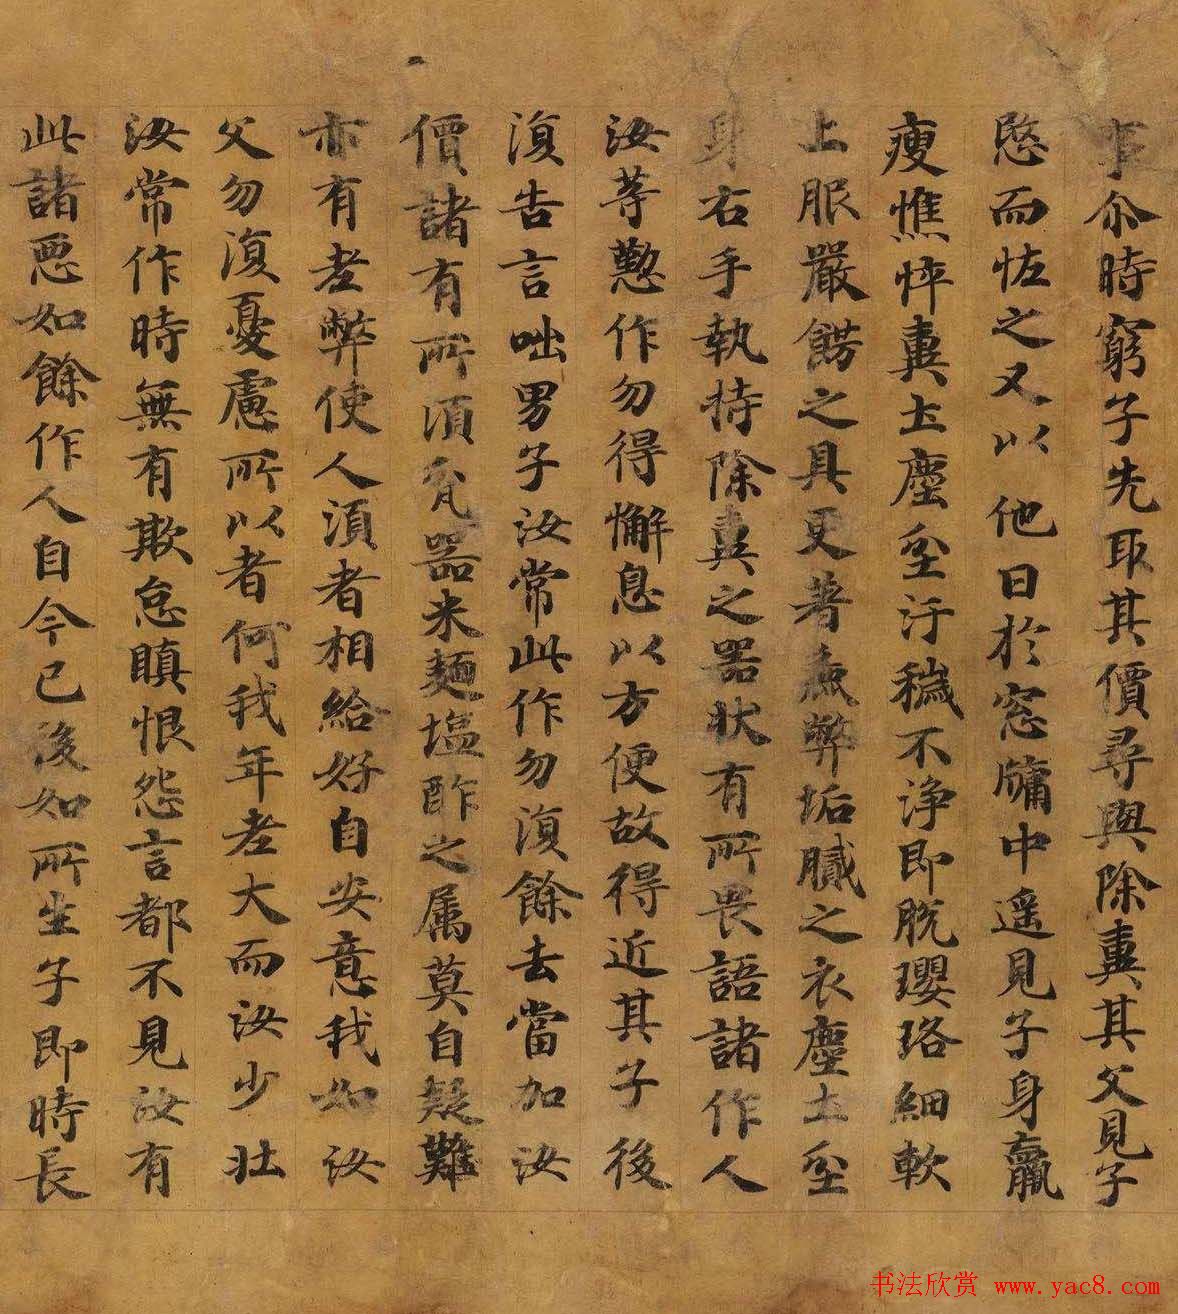 事尒時窮子先取其價尋與除糞其父見子
愍而怪之又以他日於窓牖中遥見子身羸
瘦憔悴糞土塵坌汙穢不浄即脱瓔珞細軟
上服嚴餝之具更著麁弊垢膩之衣塵土坌
身右手執持除糞之器狀有所畏語諸作人
汝等懃作勿得懈息以方便故得近其子後
復告言咄男子汝常此作勿復餘去當加汝
價諸有所湏瓫器米麺塩酢之属莫自疑難
亦有老弊使人湏者相給好自安意我如汝
父勿復憂慮所以者何我年老大而汝少壯
汝常作時無有欺怠瞋恨怨言都不見汝有
此諸惡如餘作人自今已後如所生子即時長
书法欣赏 www.yac8.com